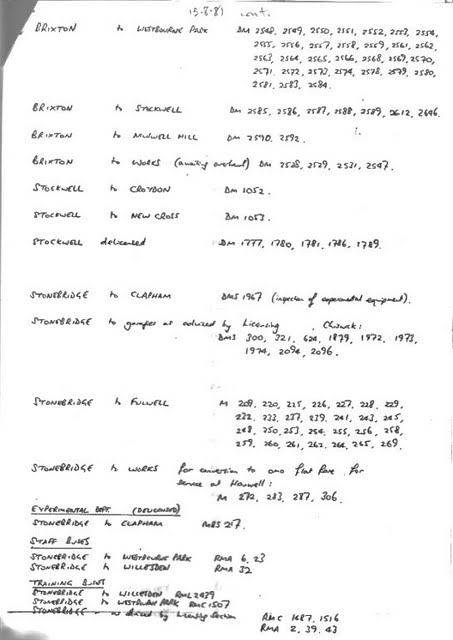 15-8-81 cont.
BRIXTON to WESTBOURNE PARK DM 2548, 2549, 2550, 2551, 2552, 2553, 2554,
2555, 2556, 2557, 2558, 2559, 2561, 2562,
2563, 2564, 2565, 2566, 2568, 2569, 2570,
2571, 2572, 2573, 2574, 2578, 2579, 2580,
2581, 2583, 2584.
BRIXTON to STOCKWELL DM 2585, 2586, 2587, 2588, 2589, 2612, 2646.
BRIXTON to MUSWELL HILL DM 2590, 2592.
BRIXTON to WORKS (awaiting overhaul) DM 2528, 2529, 2531, 2547.
STOCKWELL to CROYDON DM 1052.
STOCKWELL to NEW CROSS DM 1053.
STOCKWELL delicensed DM 1777, 1780, 1781, 1786, 1789.
STONEBRIDGE to CLAPHAM DMS 1967 (inspection of experimental equipment).
STONEBRIDGE to garages as advised by Licensing, Chiswick:
DMS 300, 321, 624, 1879, 1972, 1973,
1974, 2094, 2096.
STONEBRIDGE to FULWELL M 209, 220, 225, 226, 227, 228, 229,
232, 233, 237, 239, 241, 243, 245,
248, 250, 253, 254, 255, 256, 258,
259, 260, 261, 262, 264, 265, 269.
STONEBRIDGE to WORKS for conversion to one flat fare for
service at Hanwell:
M 272, 283, 287, 306.
EXPERIMENTAL DEPT. (DELICENSED)
STONEBRIDGE to CLAPHAM MBS 217.
STAFF BUSES
STONEBRIDGE to WESTBOURNE PARK RMA 6, 23
STONEBRIDGE to WILLESDEN RMA 32
TRAINING BUSES
STONEBRIDGE to WILLESDEN RML 2439
STONEBRIDGE to WESTBOURNE PARK RMC 1507
STONEBRIDGE as advised by Licensing Section RMC 1487, 1516
RMA 2, 39, 43